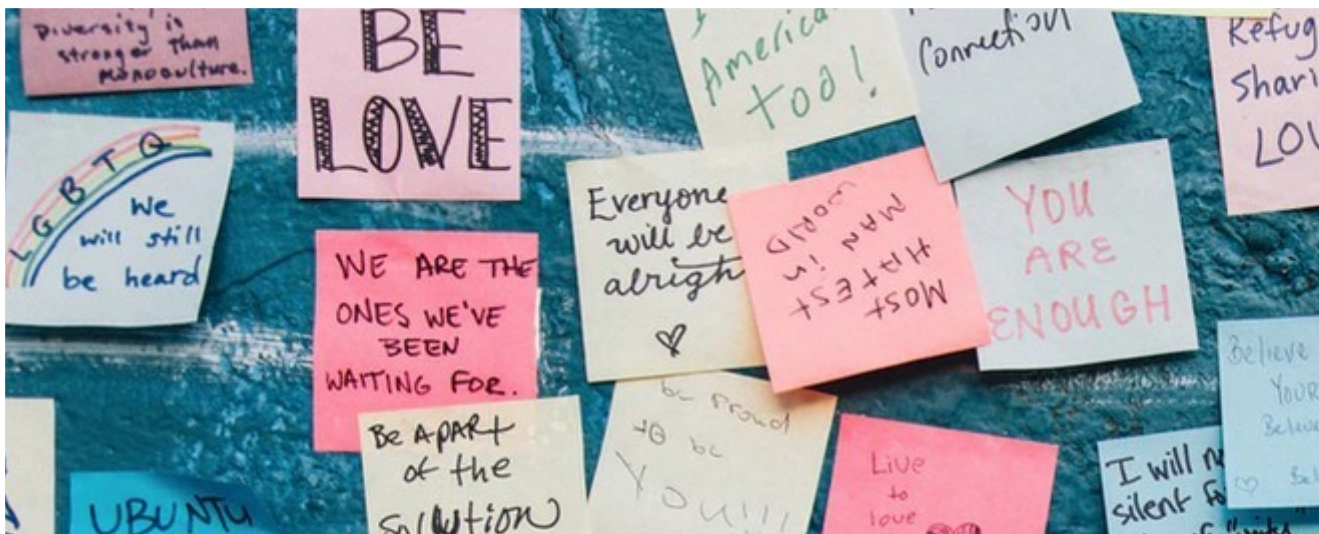 Diversity is
stronger than
monoculture.
BE
LOVE
America
Too!
Connection
Shari
LOV
LGBTQ
We
will still
be heard
WE ARE THE
ONES WE'VE
BEEN
WAITING FOR.
Everyone
will be
alright
MOST
HATEST
MAN in
WORLD
YOU
ARE
ENOUGH
Believe
YOUR
Be APART
of the
Solution
be proud
to be
YOU!!!
Live
to
love
I will
silent
UBUNTU